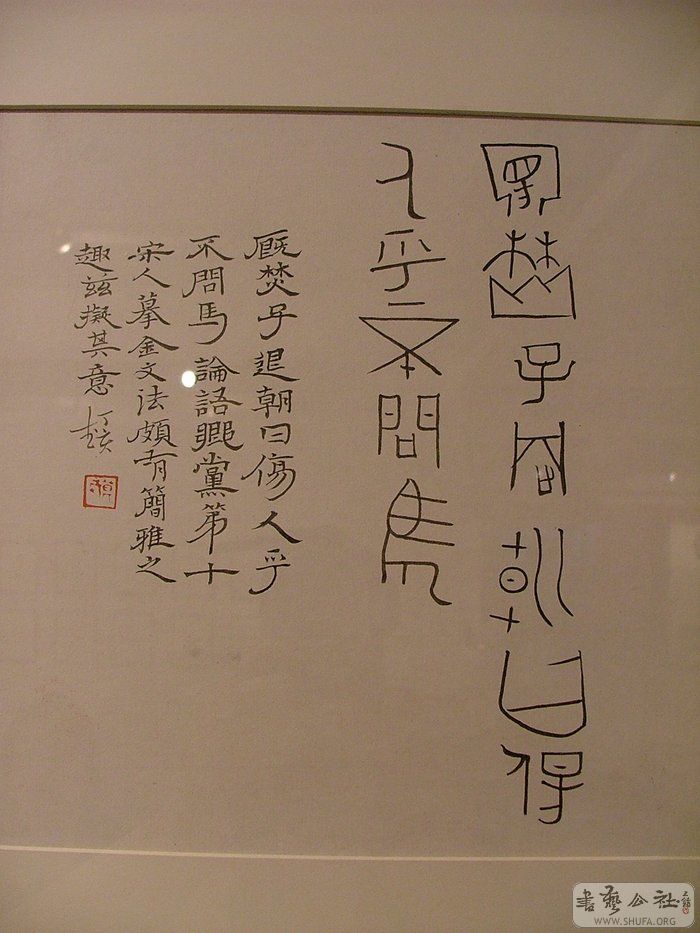 廄焚子退朝曰傷
人乎不問馬
廄焚子退朝曰傷人乎
不問馬 論語鄉黨第十
宋人摹金文法頗有簡雅之
趣茲擬其意
書藝公社
WWW.SHUFA.ORG